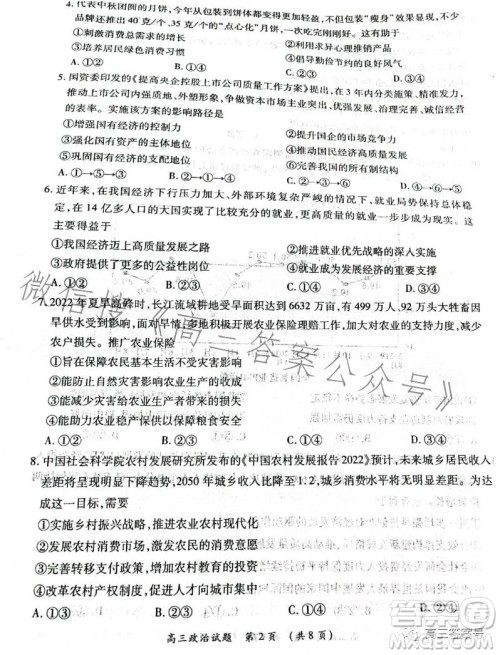 4. 代表中秋团圆的月饼，从包装到饼体都在“瘦身”
品牌还推出 40 克/个、35 克/个的“点心化”月饼。这有助于
①刺激消费增长的动力 ②
③培养居民健康的消费习惯 ④倡导勤俭节约的良好风气
A.①② B.①③ C.②④ D.③④
5. 国资委印发的《提高央企控股上市公司质量工作方案》提出，在 3 年内分类施策、精准发力，
推动上市公司内强质地、外塑形象，争做资本市场主业突出、优强发展、治理完善、诚信经营
的表率。实施方案的影响路径是
①增强国有经济的控制力 ②提升国企的市场竞争力
③强化国有资产的主体地位 ④实现国有经济高质量发展
⑤巩固国有经济的支配地位 ⑥完善我国的所有制结构
A.①→⑤→③ B.②→④→① C.④→②→⑤ D.⑥→③→④
6. 近年来，在我国经济下行压力加大、外部环境复杂严峻的情况下，就业局势保持总体稳定，
在 14 亿多人口的大国实现了比较充分的就业，就业质量和人民生活水平不断提高。这
主要得益于
①我国经济迈上高质量发展之路 ②推进就业优先战略的深入实施
③政府提供了更多的公益性岗位 ④
A.①② B.①③ C.②④ D.③④
7. 2022 年夏旱高峰时，长江流域耕地受旱面积达到 6632 万亩，有 499 万人、92 万头大牲畜因
旱受到影响。面对严重旱情，多地积极开展农业保险理赔工作，加大对农业的支持力度，减
少损失。推广农业保险
①旨在保障广大农民旱涝保收
②能防止自然灾害影响农业生产的收成
③能减少自然灾害给农业生产者带来的损失
④有助于农业稳产保供以及农业可持续发展
A.①② B.①③ C.②④ D.③④
8. 中国社会科学院农村发展研究所发布的《中国农村发展报告 2022》预计，未来城乡居民收入
差距将呈现明显下降趋势，2050 年城乡收入比降至 1.2，城乡消费水平将无明显差距。为达
成这一目标，需要
①实施乡村振兴战略，推进农业农村现代化
②发展农村消费市场，激发农民的消费意愿
③完善转移支付政策，增强农业农村的投资
④改革农村产权制度，促进人才向城市集中
A.①② B.①③ C.②④ D.③④
高三政治试题 第 2 页（共 8 页）
微信搜《高三答案公众号》